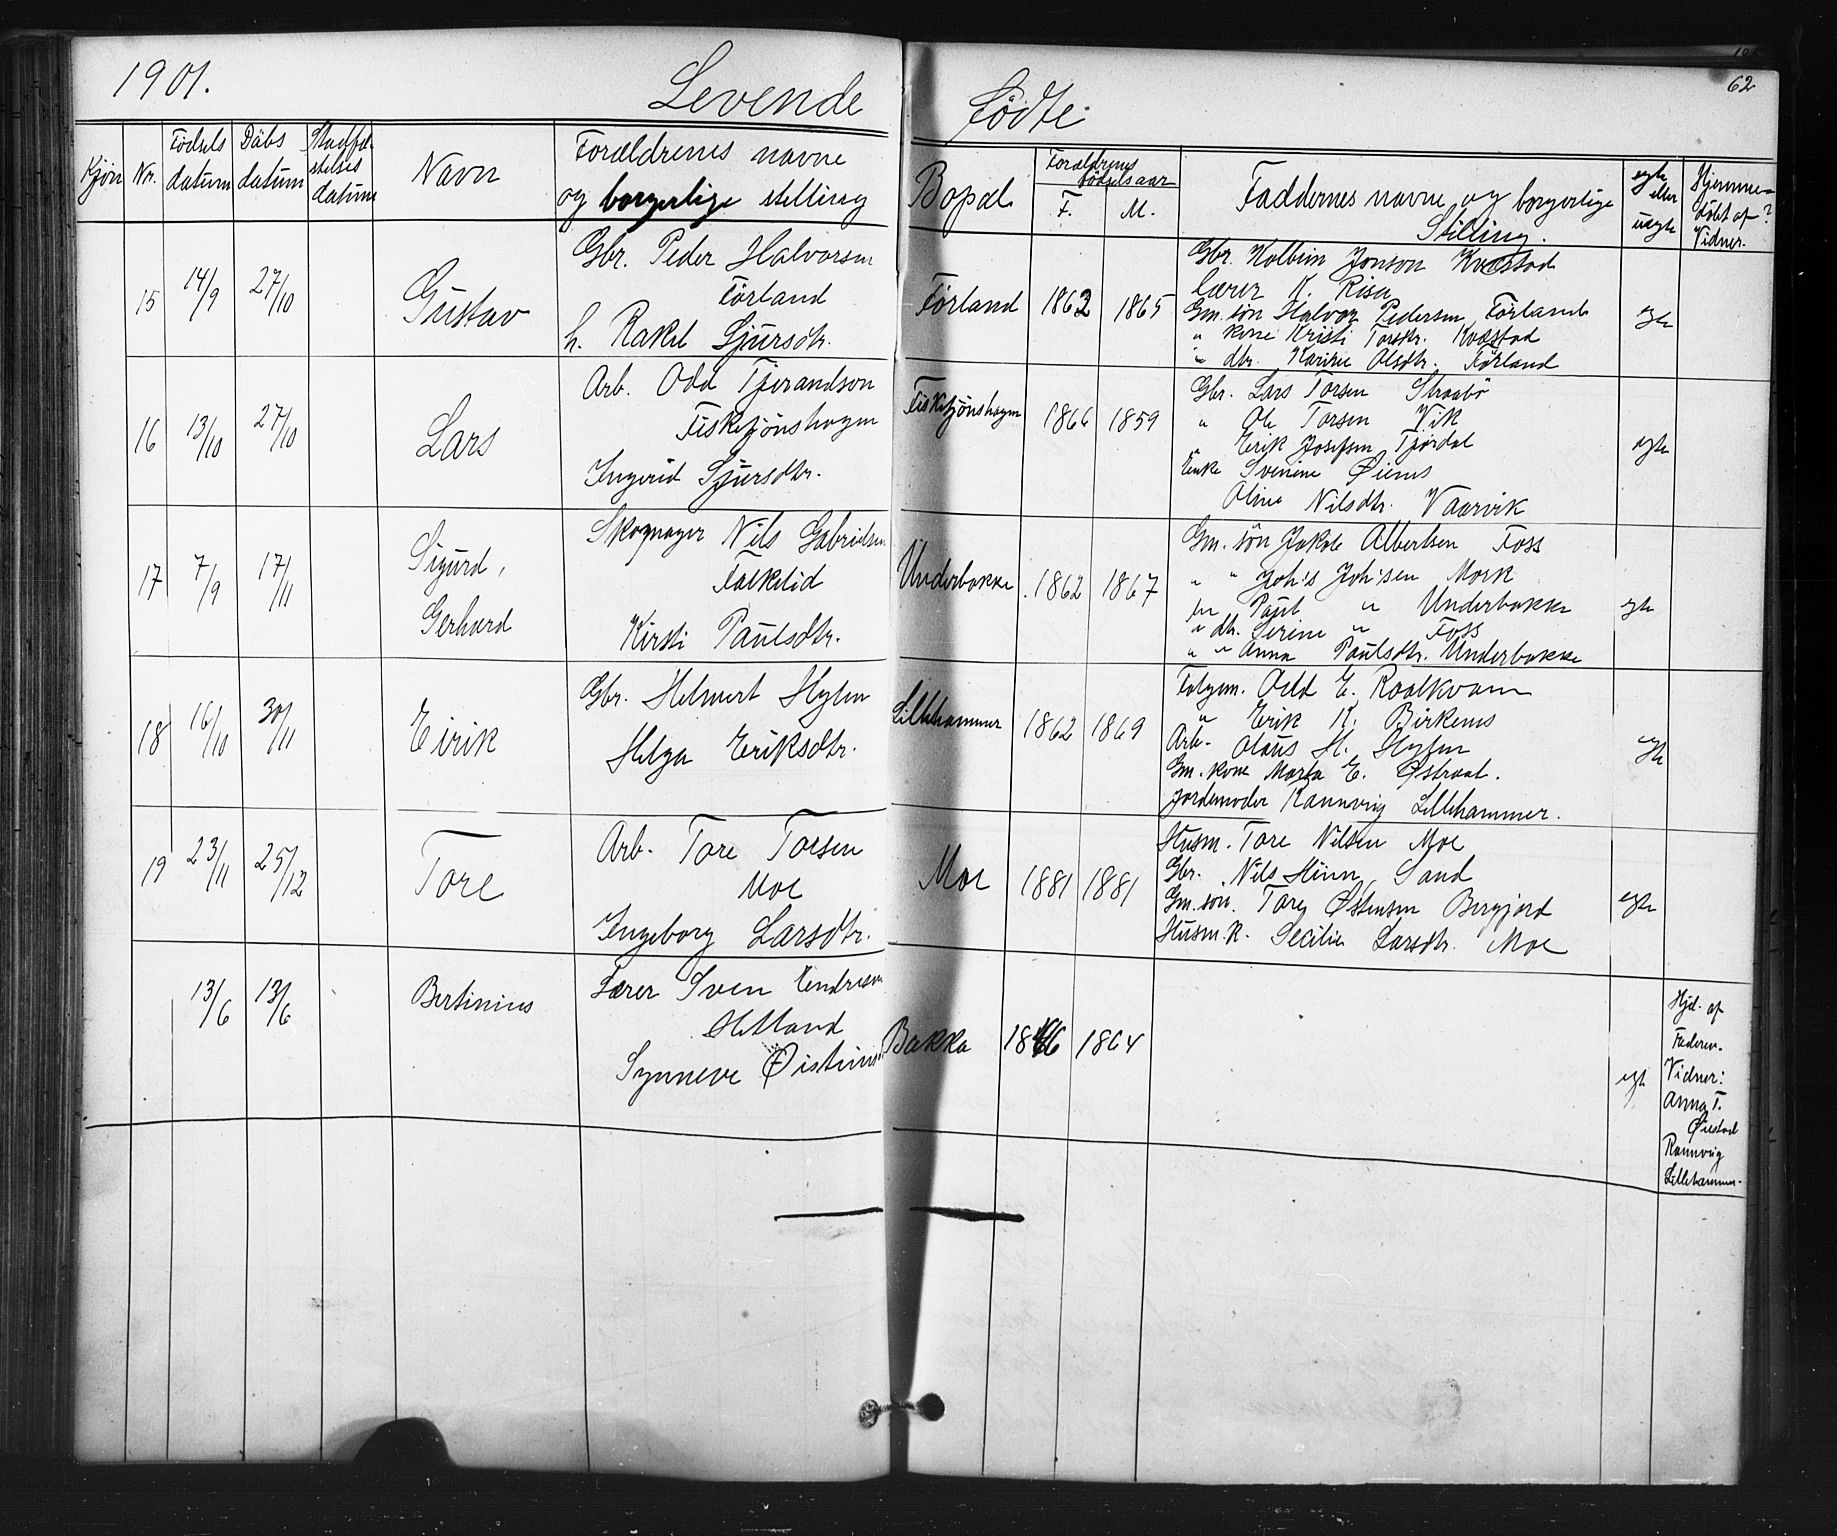 1901.
Levende fødte
62
Kjøn
Nr.
Fødsels datum
Dåbs datum
Stadfæstelses datum
Navn
Forældrenes navne og borgerlige stilling
Bopæl
Forældrenes fødselsaar
F.
M.
Faddernes navne og borgerlige Stilling.
egte eller uegte
Hjemmedøbt af? Vidner.
15
14/9
27/10
Gustav
Gbr. Peder Halvorsen
Førland
h. Rakel Sjursdtr.
Førland
1862
1865
Gbr. Kolbein Jonson Kvæstad
Lærer K. Riser
Gm. søn Halvor Pedersen Førland
" kone Kristi Torskr. Kvæstad
" dtr. Karine Olsdtr. Førland
egte
16
13/10
27/10
Lars
Arb. Odd Tjerandson
Fisketjønshagen
Ingerid Sjursdtr.
Fisketjønshagen
1866
1859
Gbr. Lars Torsen Straabø
" Ole Torsen Vik
" Erik Josefsen Tjørdal
Enke Svenine Øienes
Oline Nilsdtr. Vaarvik
egte
17
7/9
17/11
Sigurd,
Gerhard
Skomager Nils Gabrielsen
Falkelid
Kirsti Paulsdtr.
Underbakke
1862
1867
Gm. søn Jakob Albertsen Foss
" " Joh's Joh'sen Mork
" Paul " Underbakke
" dtr. Serine " Foss
" " Anna Paulsdtr. Underbakke
egte
18
16/10
30/11
Eirik
Gbr. Helmert Hylen
Helga Eriksdtr.
Lillehammer
1862
1869
Folgem. Odd E. Roalkvam
" Erik K. Birkenes
Arb. Olaus H. Hylen
Gm. kone Marta E. Østraat.
Jordemoder Rannveig Lillehammer.
egte
19
23/11
25/12
Tore
Arb. Tore Torsen
Moe
Ingeborg Larsdtr.
Moe
1881
1881
Husm. Tore Nilsen Moe
Gbr. Nils Hinn, Sand
Gm. søn. Tore Østensen Bergjord
Husm. K. Cecilie Larsdtr. Moe
egte
13/6
13/6
Bertinius
Lærer Sven Endresen
Helland
Synneve Øistens
Bakka
1866
1864
egte
Hjd. af
Faderen.
Vidner:
Anna T.
Øiestad
Rannveig
Lillehammer.